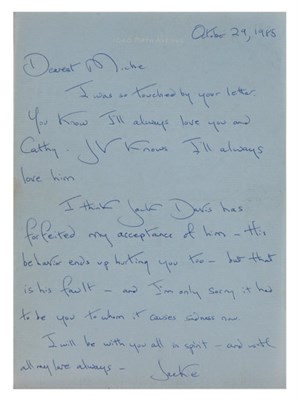 October 24, 1985
Dearest Mickie
I was so touched by your letter.
You know I'll always love you and
Cathy. JV knows I'll always
love him.
I think Jack Davis has
forfeited my acceptance of him - His
behavior ends up hurting you too - but that
is his fault - and I'm only sorry it had
to be you to whom it causes sadness now.
I will be with you all in spirit - and with
all my love always - Jackie